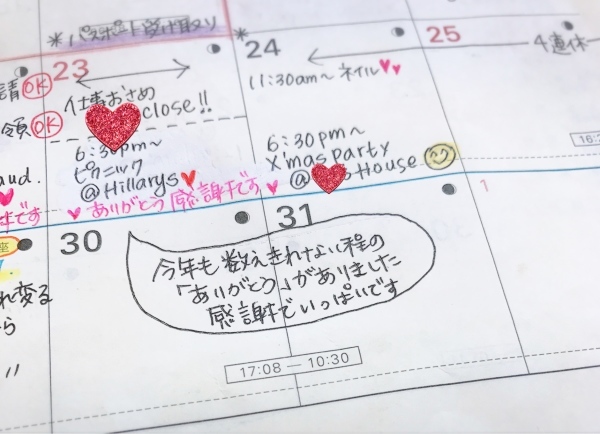 *パスポート受け取り
23
24
25
請 OK
領 OK
仕事おさめ
close!!
6:30pm~
ピクニック
@Hillarys
ありがとう 感謝です
*
11:30am~ ネイル
6:30pm~
X'mas party
@ House
4連休
16:
aud.
です
30
31
1
座
れ変る
から
今年も数えきれない程の
「ありがとう」がありました
感謝でいっぱいです
17:08 — 10:30